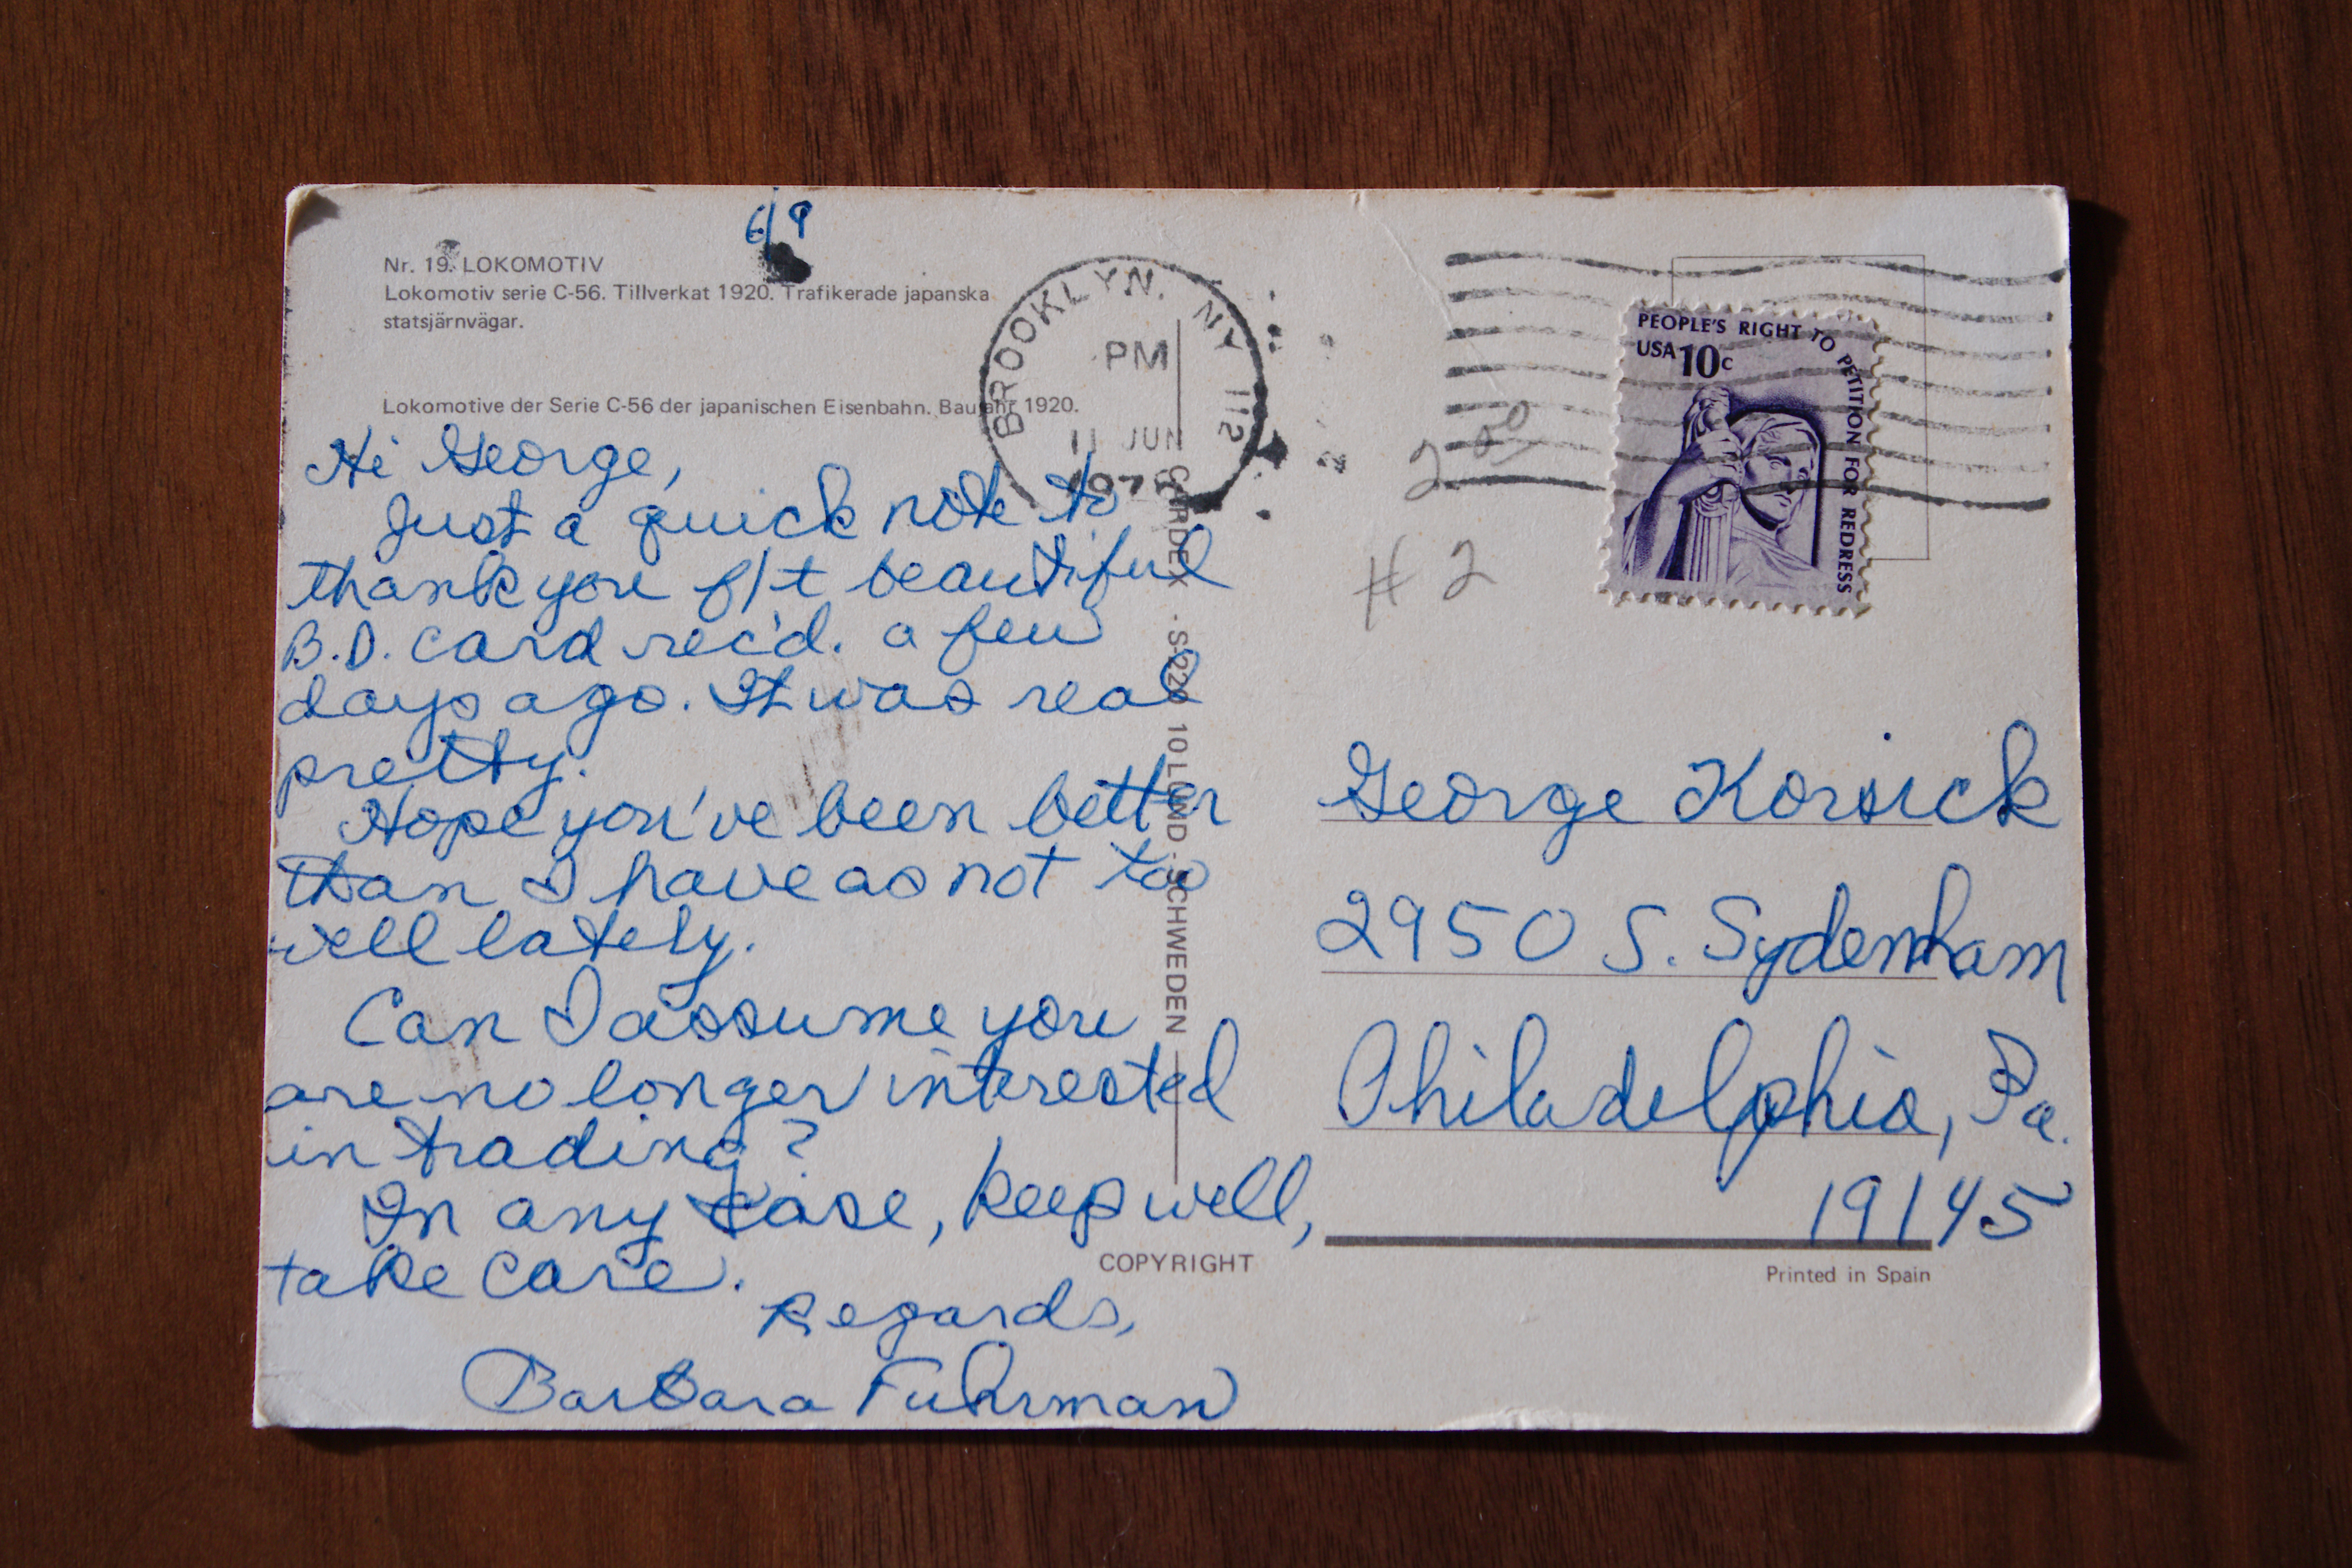 6/9
Nr. 19. LOKOMOTIV
Lokomotiv serie C-56. Tillverkat 1920. Trafikerade japanska
statsjärnvägar.
Lokomotive der Serie C-56 der japanischen Eisenbahn. Baujahr 1920.
Hi George,
Just a quick note to
thank you f/t beautiful
B.D. card rec'd. a few
days ago. It was real
pretty.
Hope you've been better
than I have as not too
well lately.
Can I assume you
are no longer interested
in trading?
In any case, keep well,
take care.
Regards,
Barbara Fuhrman
BROOKLYN, NY 112
PM
11 JUN
CARDEX - S-220 10 LUND - SCHWEDEN
COPYRIGHT
PEOPLE'S RIGHT TO PETITION FOR REDRESS
USA 10c
2 00
# 2
George Korsick
2950 S. Sydenham
Philadelphia, Pa.
19145
Printed in Spain